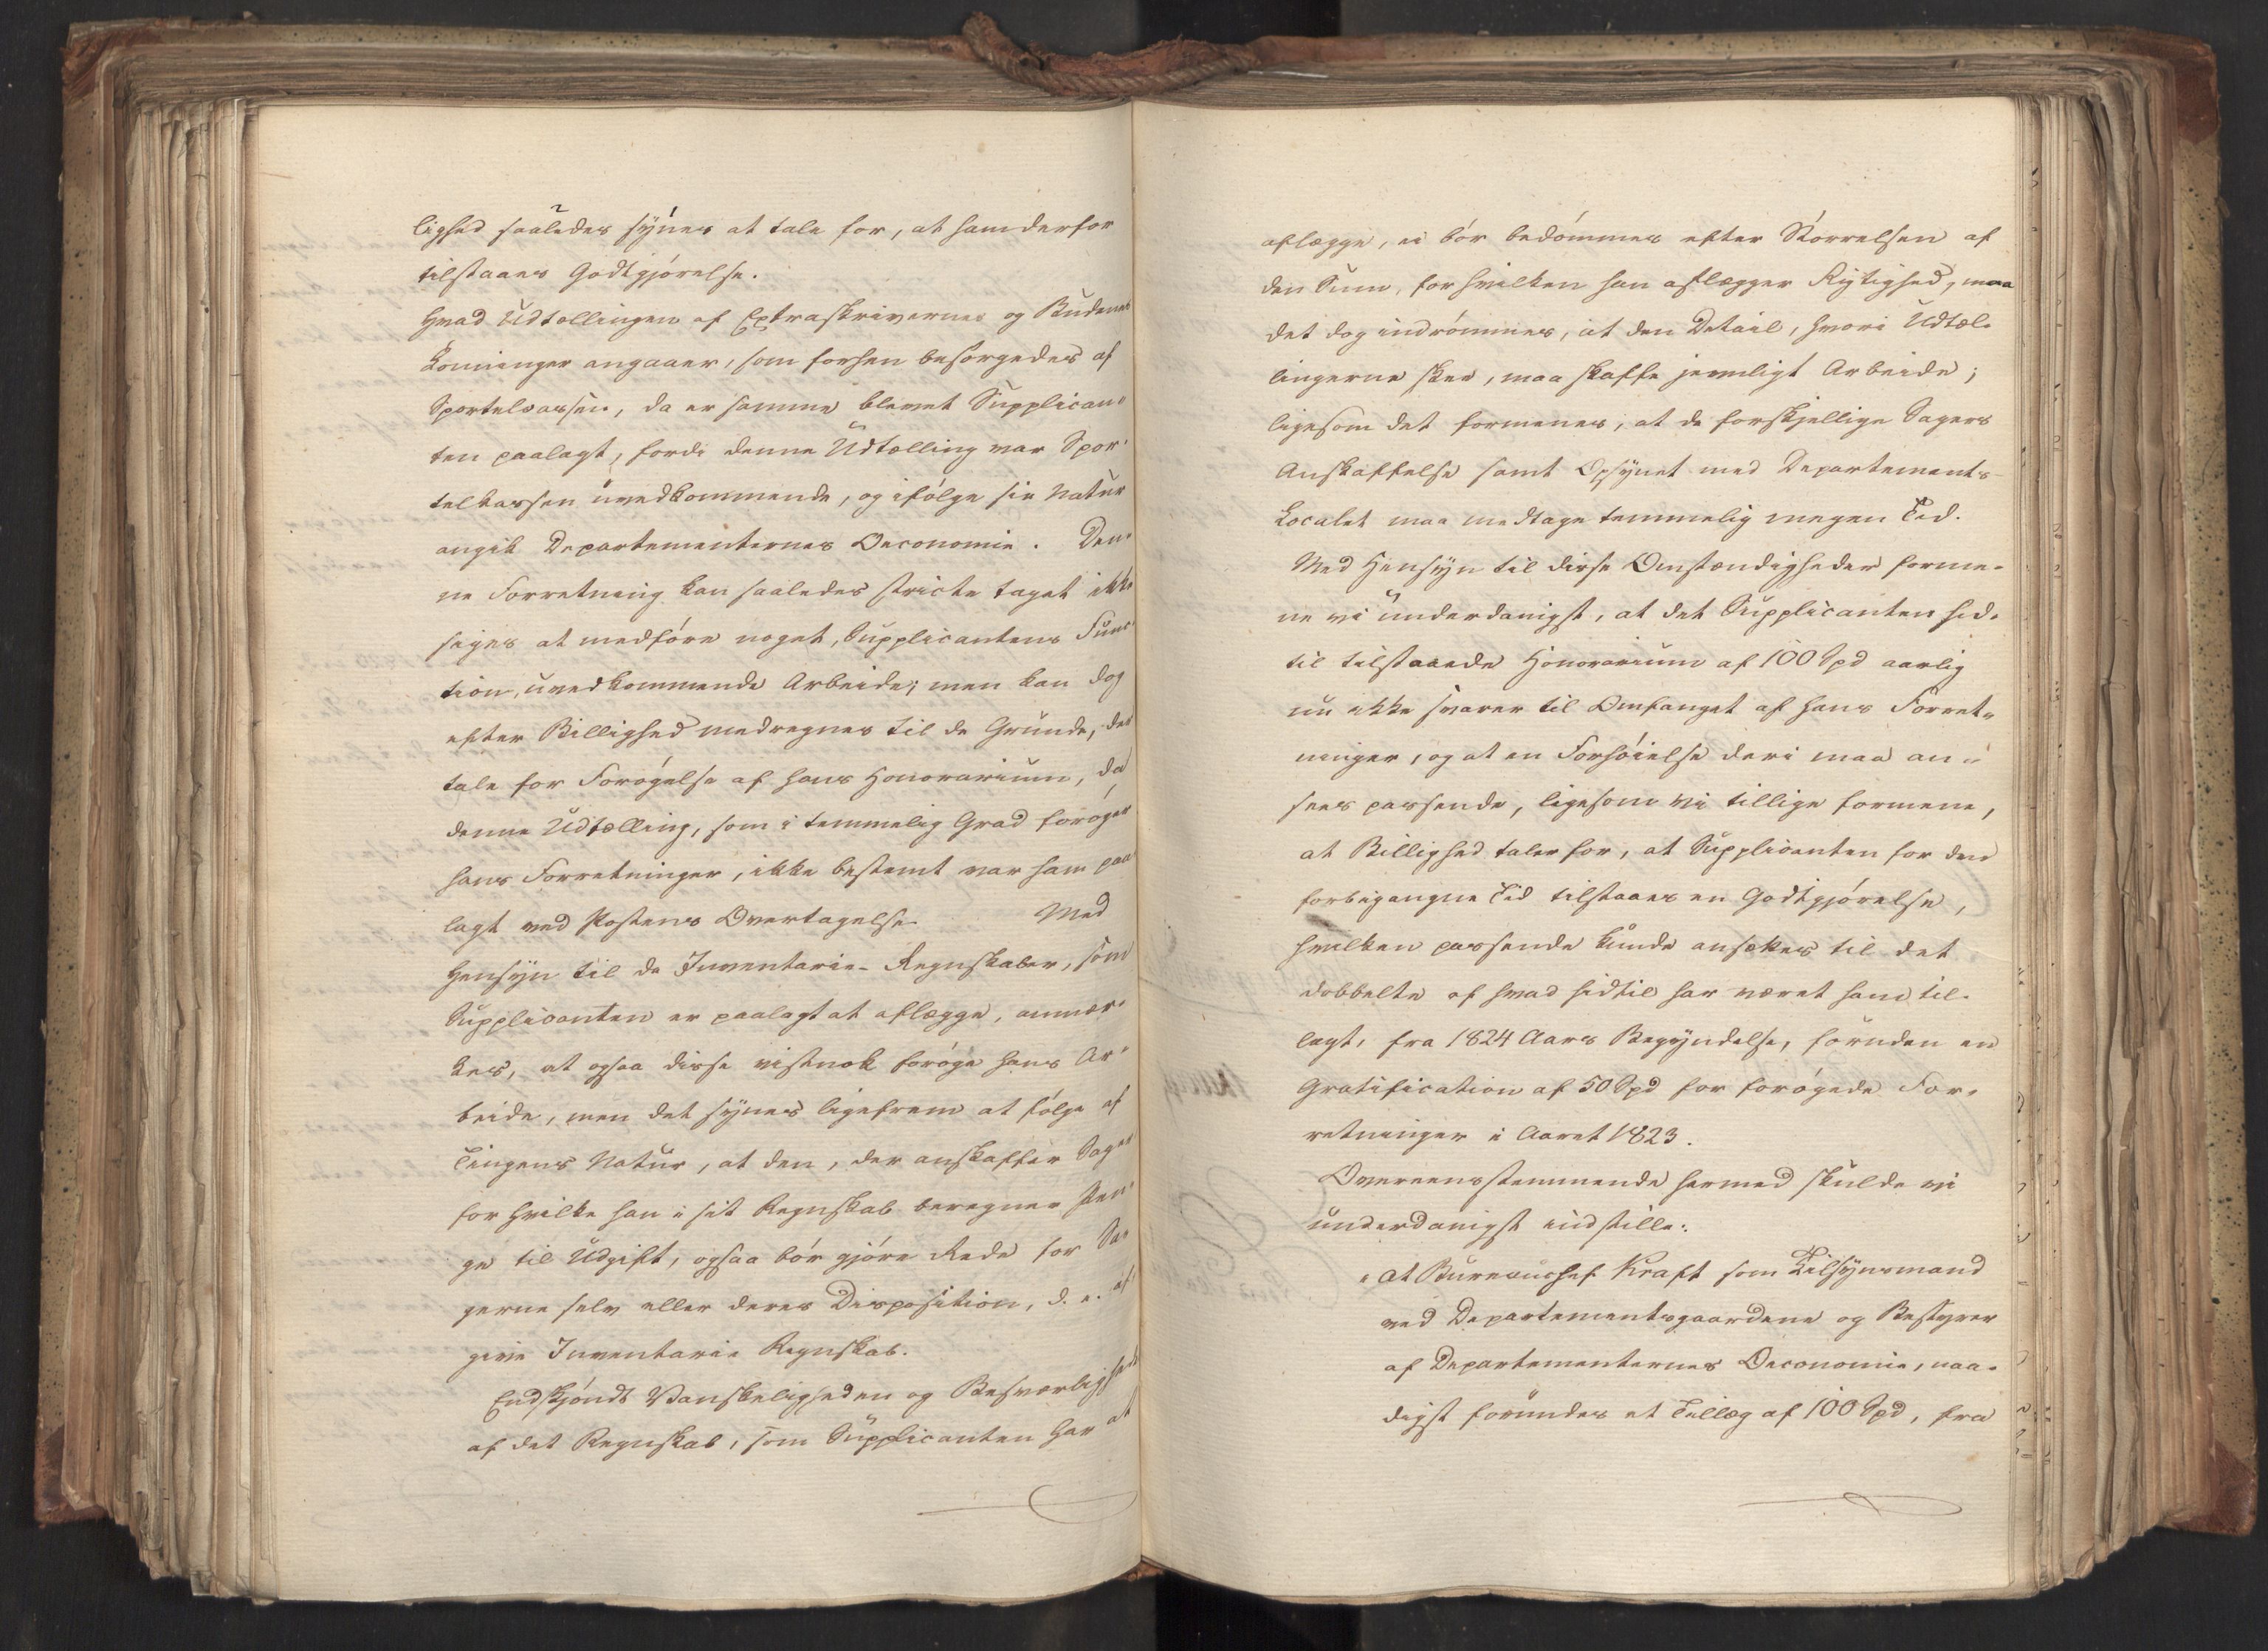 lighed saaledes synes at tale for, at ham derfor
tilstaaes Godtgjørelse.
Hvad Udtællingen af Extraskrivernes og Budenes
Lønninger angaaer, som forhen besørgedes af
Sportelcassen, da er samme blevet Supplican-
ten paalagt, fordi denne Udtælling var Spor-
telkassen uvedkommende, og ifølge sin Natur
angik Departementernes Oeconomie. Den-
ne Forretning kan saaledes stricte taget ikke
siges at medføre noget, Supplicantens Func-
tion, uvedkommende Arbeide; men kan dog
efter Billighed medregnes til de Grunde, der
tale for Forøgelse af hans Honorarium, da
denne Udtælling, som i temmelig Grad forøger
hans Forretninger, ikke bestemt var ham paa-
lagt ved Postens Overtagelse. Med
Hensyn til de Inventarie-Regnskaber, som
Supplicanten er paalagt at aflægge, anmær-
kes, at ogsaa disse vistnok forøge hans Ar-
beide, men det synes ligefrem at følge af
Tingens Natur, at den, der anskaffer Sager
for hvilke han i sit Regnskab beregner Pen-
ge til Udgift, ogsaa bør gjøre Rede for Sa-
gerne selv eller deres Disposition, d. e. af-
give Inventarie Regnskab.
Endskjøndt Vanskeligheden og Besværligheden
af det Regnskab, som Supplicanten har at
aflægge, ei bør bedømmes efter Størrelsen af
den Sum, for hvilken han aflægger Rigtighed, maa
det dog indrømmes, at den Detail, hvori Udtæl-
lingerne skee, maa skaffe jevnligt Arbeide;
ligesom det formenes, at de forskjellige Sagers
Anskaffelse samt Opsynet med Departements-
Localet maa medtage temmelig megen Tid.
Med Hensyn til disse Omstændigheder forme-
ne vi underdanigst, at det Supplicanten hid-
til tilstaaede Honorarium af 100 Spd aarlig
nu ikke svarer til Omfanget af hans Forret-
ninger, og at en Forhøielse deri maa an-
sees passende, ligesom vi tillige formene,
at Billighed taler for, at Supplicanten for den
forbigangne Tid tilstaaes en Godtgjørelse,
hvilken passende kunde ansættes til det
dobbelte af hvad hidtil har været ham til-
lagt, fra 1824 Aars Begyndelse, foruden en
Gratification af 50 Spd for forøgede For-
retninger i Aaret 1823.
Overeensstemmende hermed skulde vi
underdanigst indstille:
"At Bureauchef Kraft som Tilsynsmand
ved Departementsgaardene og Bestyrer
af Departementernes Oeconomie, naa-
digst forundes et Tillæg af 100 Spd, fra